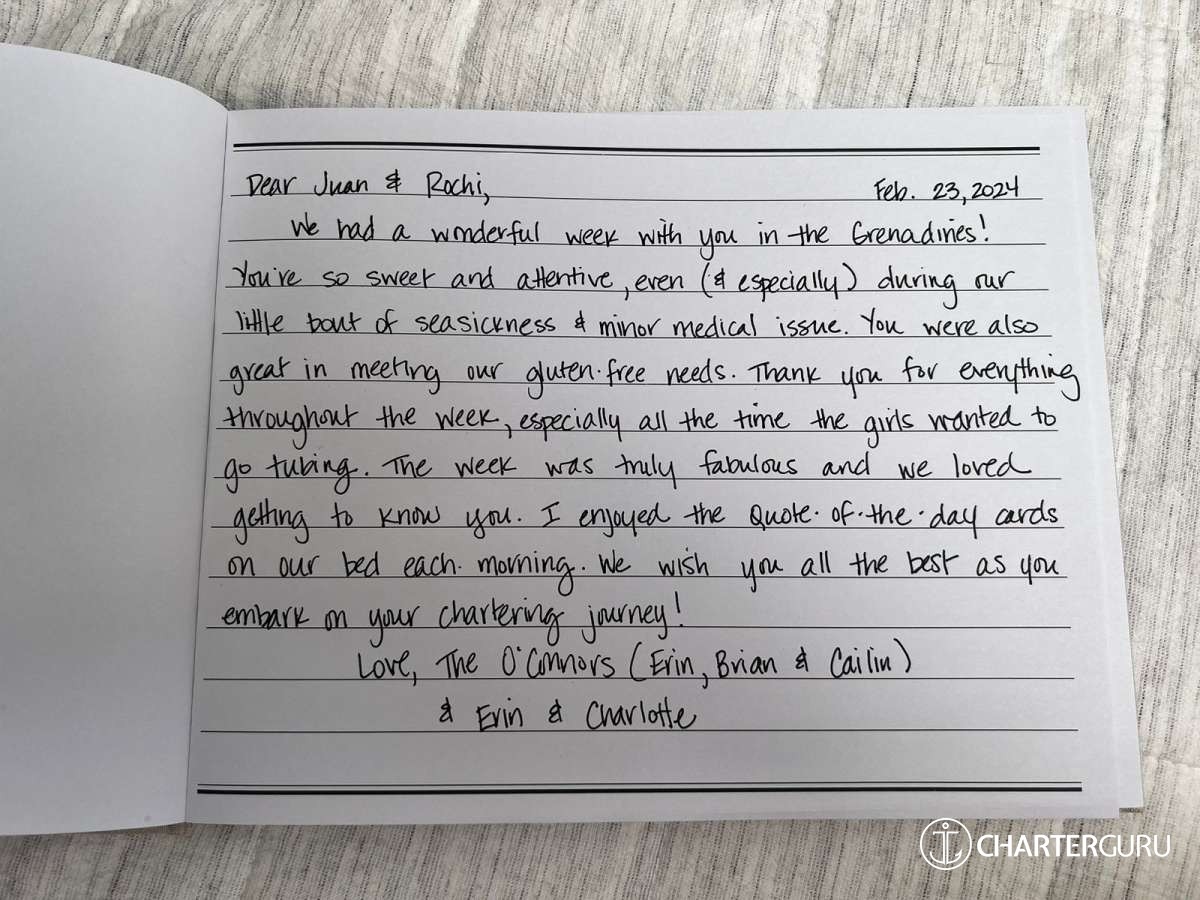 Dear Juan & Rochi, Feb. 23, 2024
We had a wonderful week with you in the Grenadines!
You're so sweet and attentive, even (& especially) during our
little bout of seasickness & minor medical issue. You were also
great in meeting our gluten-free needs. Thank you for everything
throughout the week, especially all the time the girls wanted to
go tubing. The week was truly fabulous and we loved
getting to know you. I enjoyed the Quote-of-the-day cards
on our bed each morning. We wish you all the best as you
embark on your chartering journey!
Love, The O'Connors (Erin, Brian & Cailin)
& Erin & Charlotte
CHARTERGURU